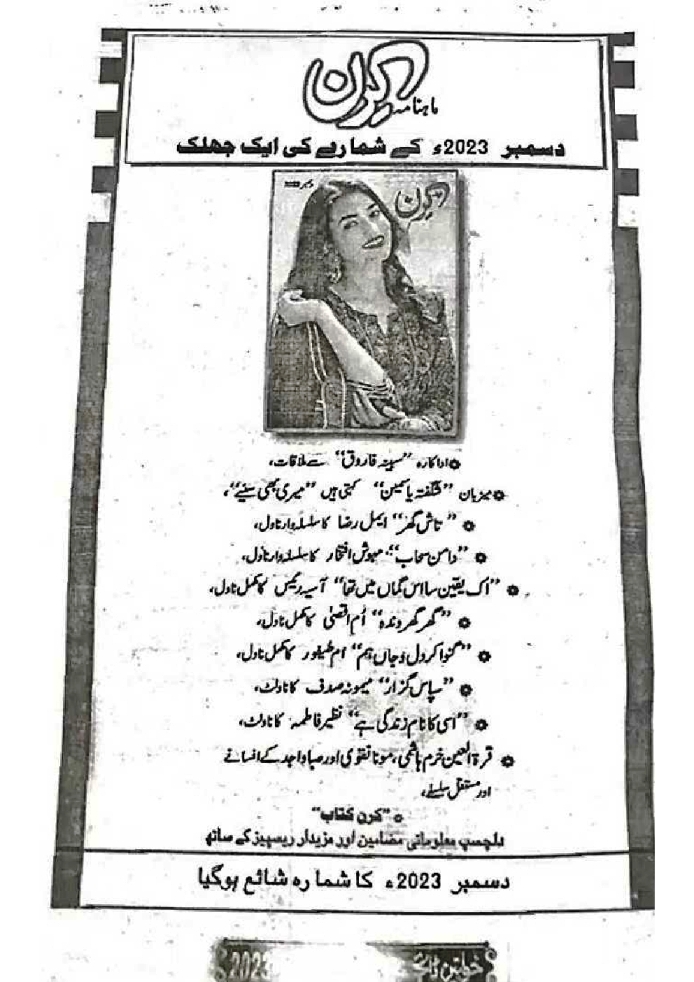 ماہنامہ کرن
دسمبر 2023ء کے شمارے کی ایک جھلک
کرن
اداکارہ "سبینہ فاروق" سے ملاقات،
میزبان "شگفتہ یاسمین" کہتی ہیں "میری بھی سنیے"،
"تاش گھر" ایمل رضا کا سلسلہ وار ناول،
"دامن سحاب" مہوش افتخار کا سلسلہ وار ناول،
"اک یقین سا اس گماں میں تھا" آسیہ رئیس کا مکمل ناول،
"گھر گھروندہ" اُم اقصیٰ کا مکمل ناول،
"گنوا کر دل و جاں ہم" ام طیفور کا مکمل ناول،
"سپاس گزار" میمونہ صدف کا ناولٹ،
"اسی کا نام زندگی ہے" نظیر فاطمہ کا ناولٹ،
قرۃ العین خرم ہاشمی، مونا نقوی اور صبا واجد کے افسانے
اور مستقل سلسلے،
"کرن کتاب"
دلچسپ معلوماتی مضامین اور مزیدار ریسیپیز کے ساتھ
دسمبر 2023ء کا شمارہ شائع ہوگیا
خواتین ڈائجسٹ 2023